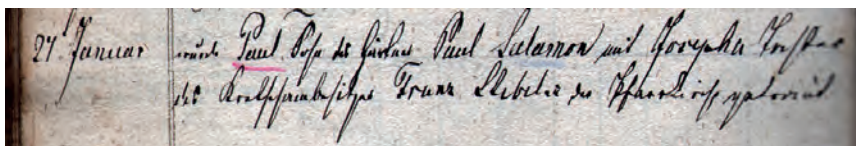 27 Januar wurde Paul Sohn des Häusler Paul Salamon mit Josepha Tochter
des Kretschambesitzer Franz in der Pfarrkirche getraut.